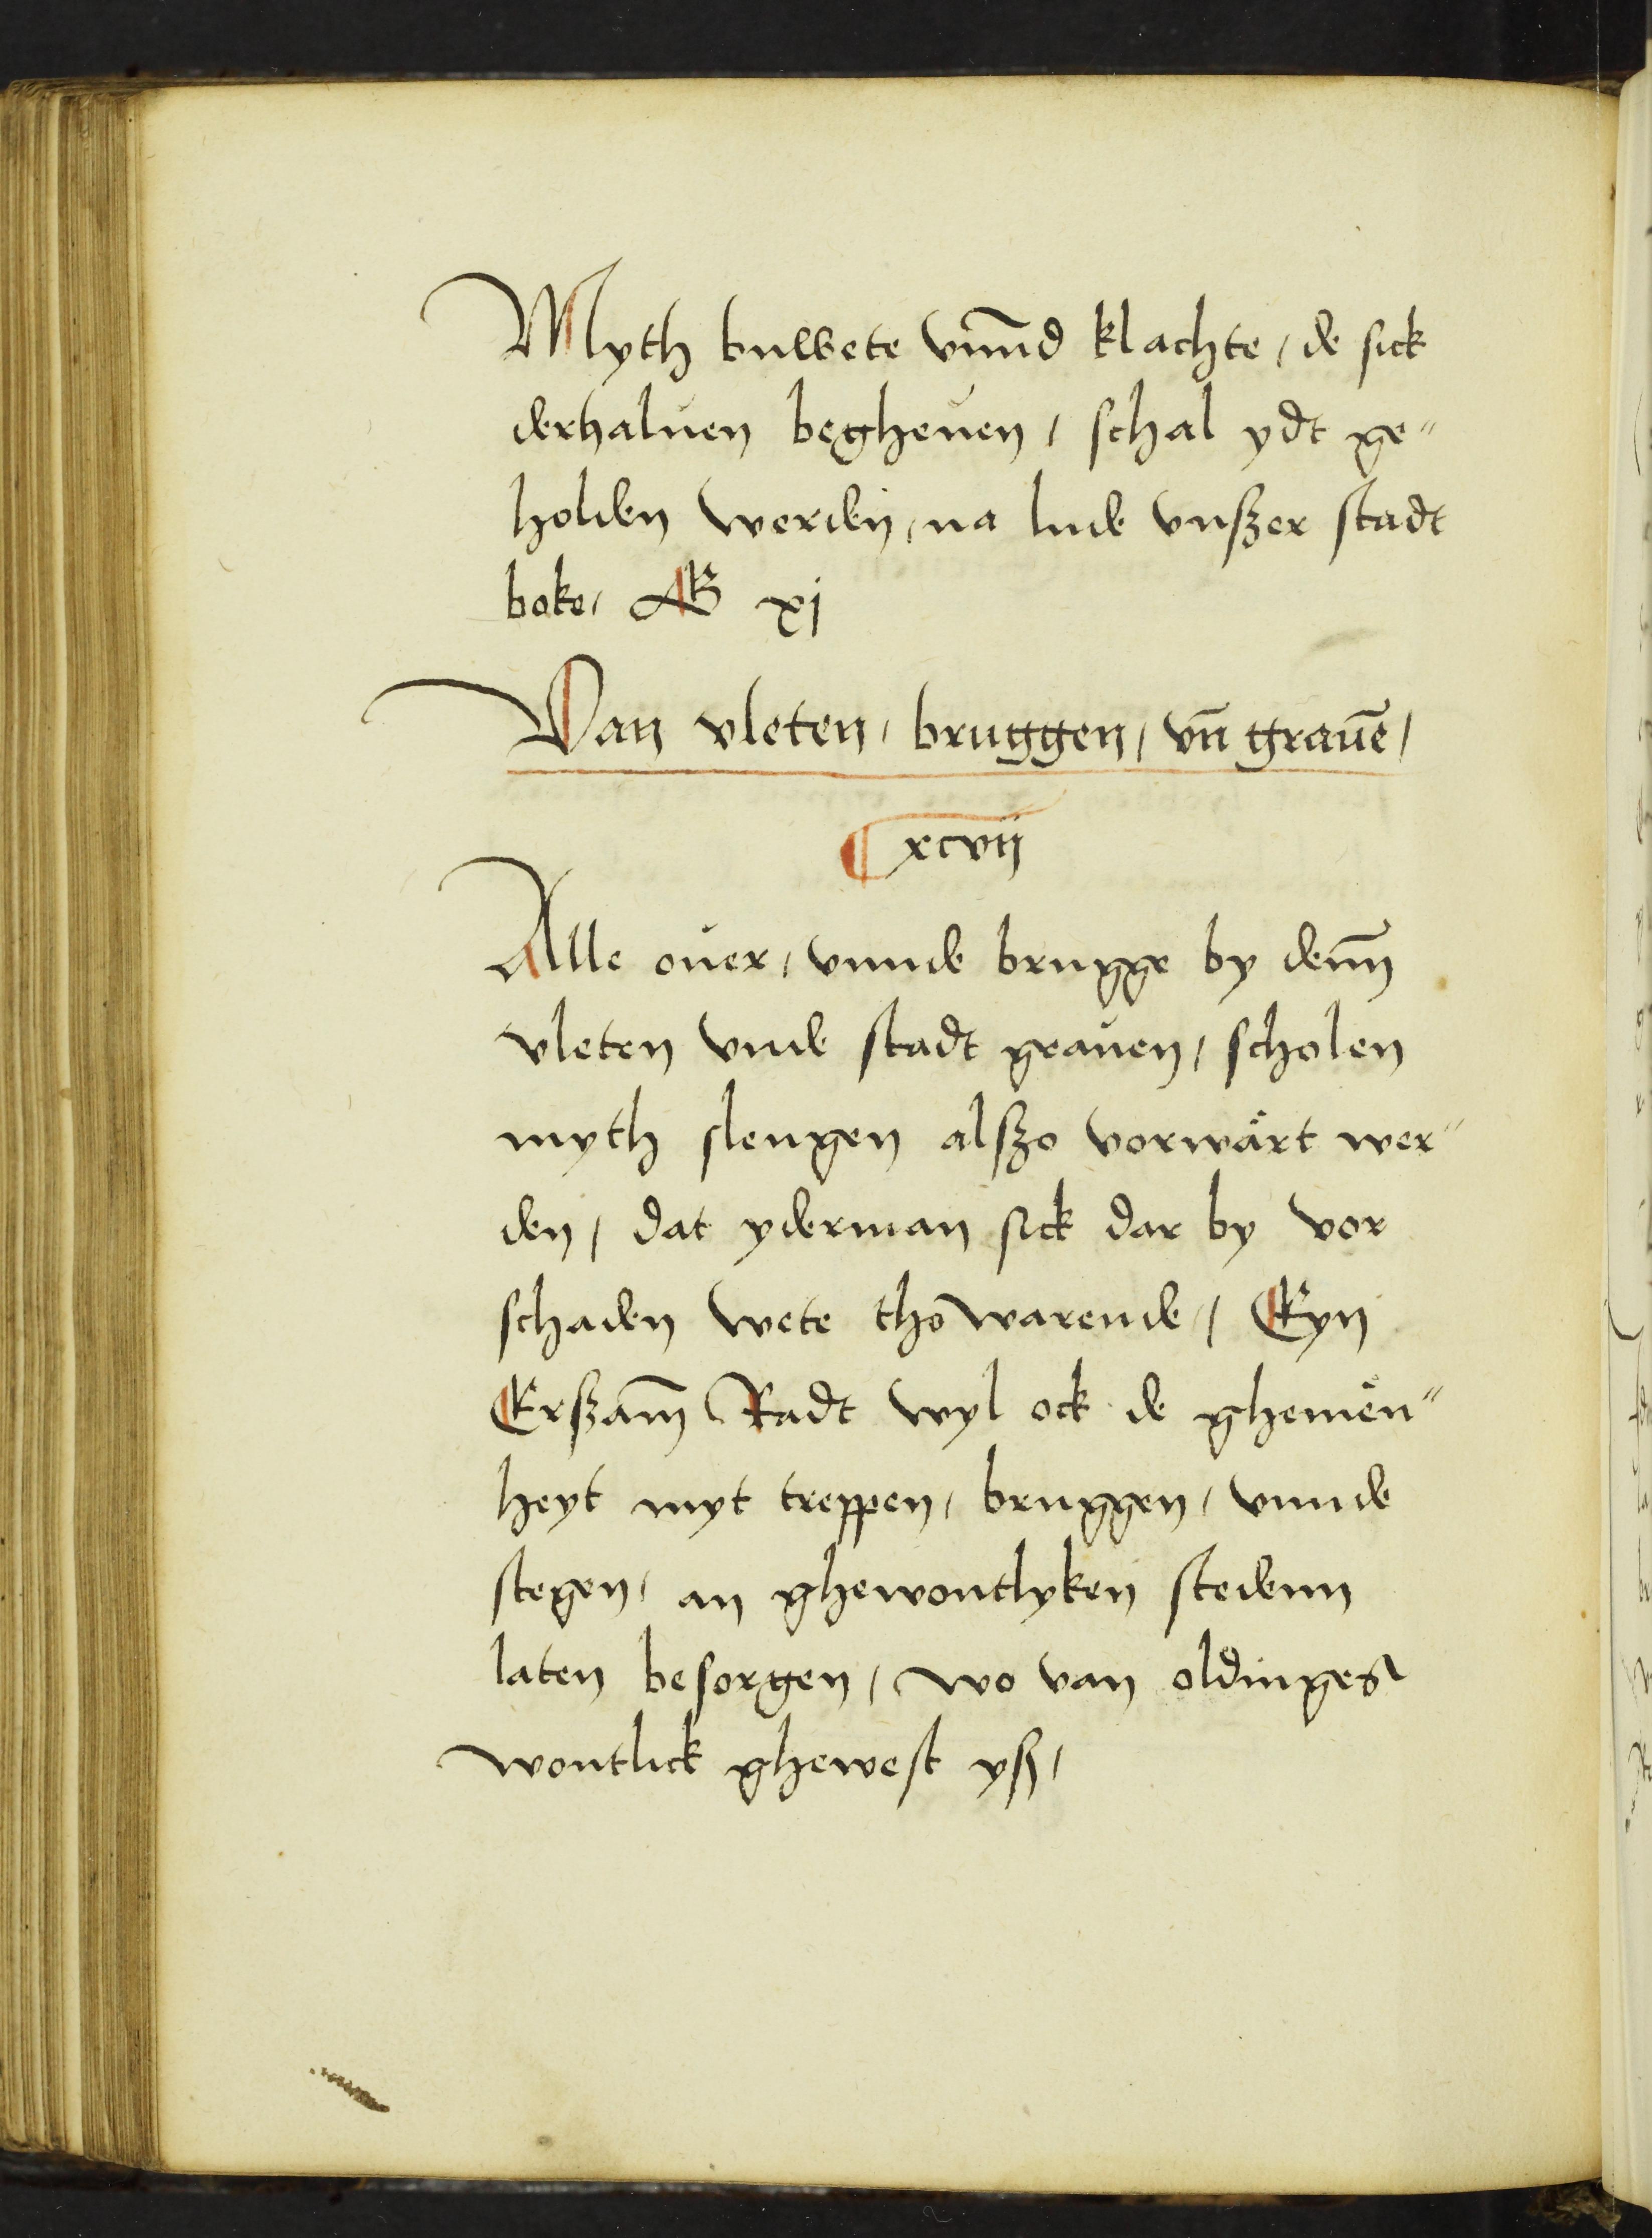 Myth buwete vnnd klachte / de sick
derhaluen begheuen / schal ydt ge⸗
holden werden / na lude vnßer stadt
boke / B xj
Van vleten / bruggen / vn̄ grauē /
¶ xcvij
Alle ouer / vnnde brugge by denn̄
vleten vnde stadt grauen / scholen
myth slengen alßo vorwart wer⸗
den / dat yderman sick dar by vor
schaden wete tho warende / Eyn
Erßam̄ Radt wyl ock de ghemen⸗
heyt myt treppen / bruggen / vnnde
stegen / an ghewontlyken stedenn
laten besorgen / wo van oldinges
wontlick ghewest yß /